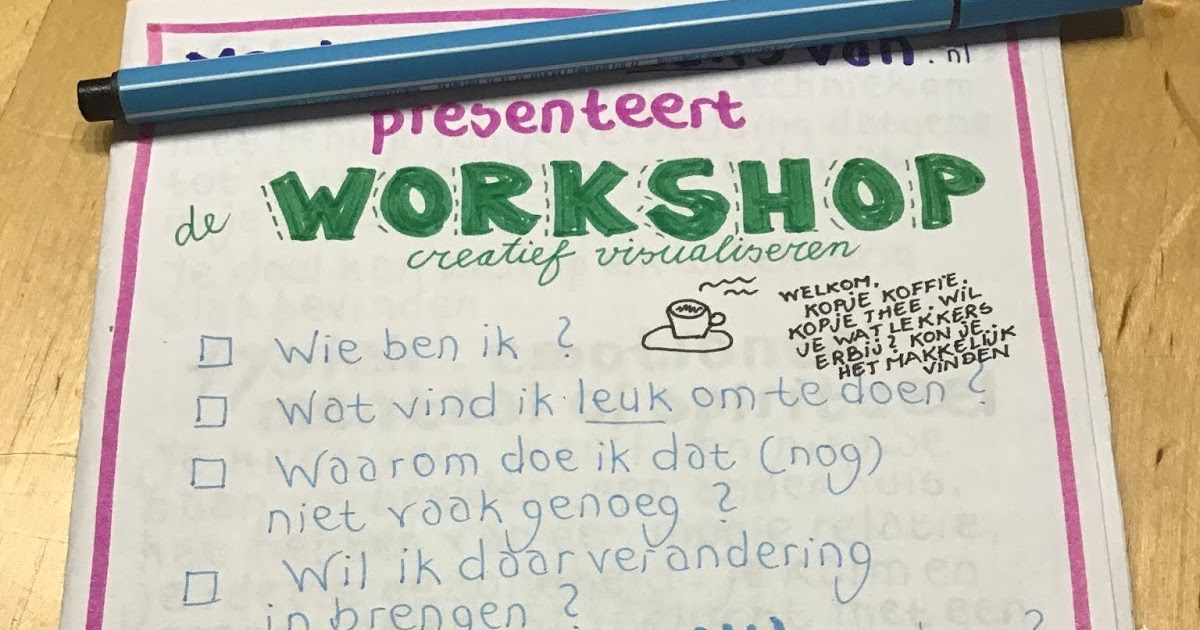 van.nl
presenteert
de WORKSHOP
creatief visualiseren
WELKOM,
KOPJE KOFFIE,
KOPJE THEE, WIL
JE WAT LEKKERS
ERBIJ? KON JE
HET MAKKELIJK
VINDEN
Wie ben ik ?
Wat vind ik leuk om te doen ?
Waarom doe ik dat (nog)
niet vaak genoeg ?
Wil ik daar verandering
in brengen ?